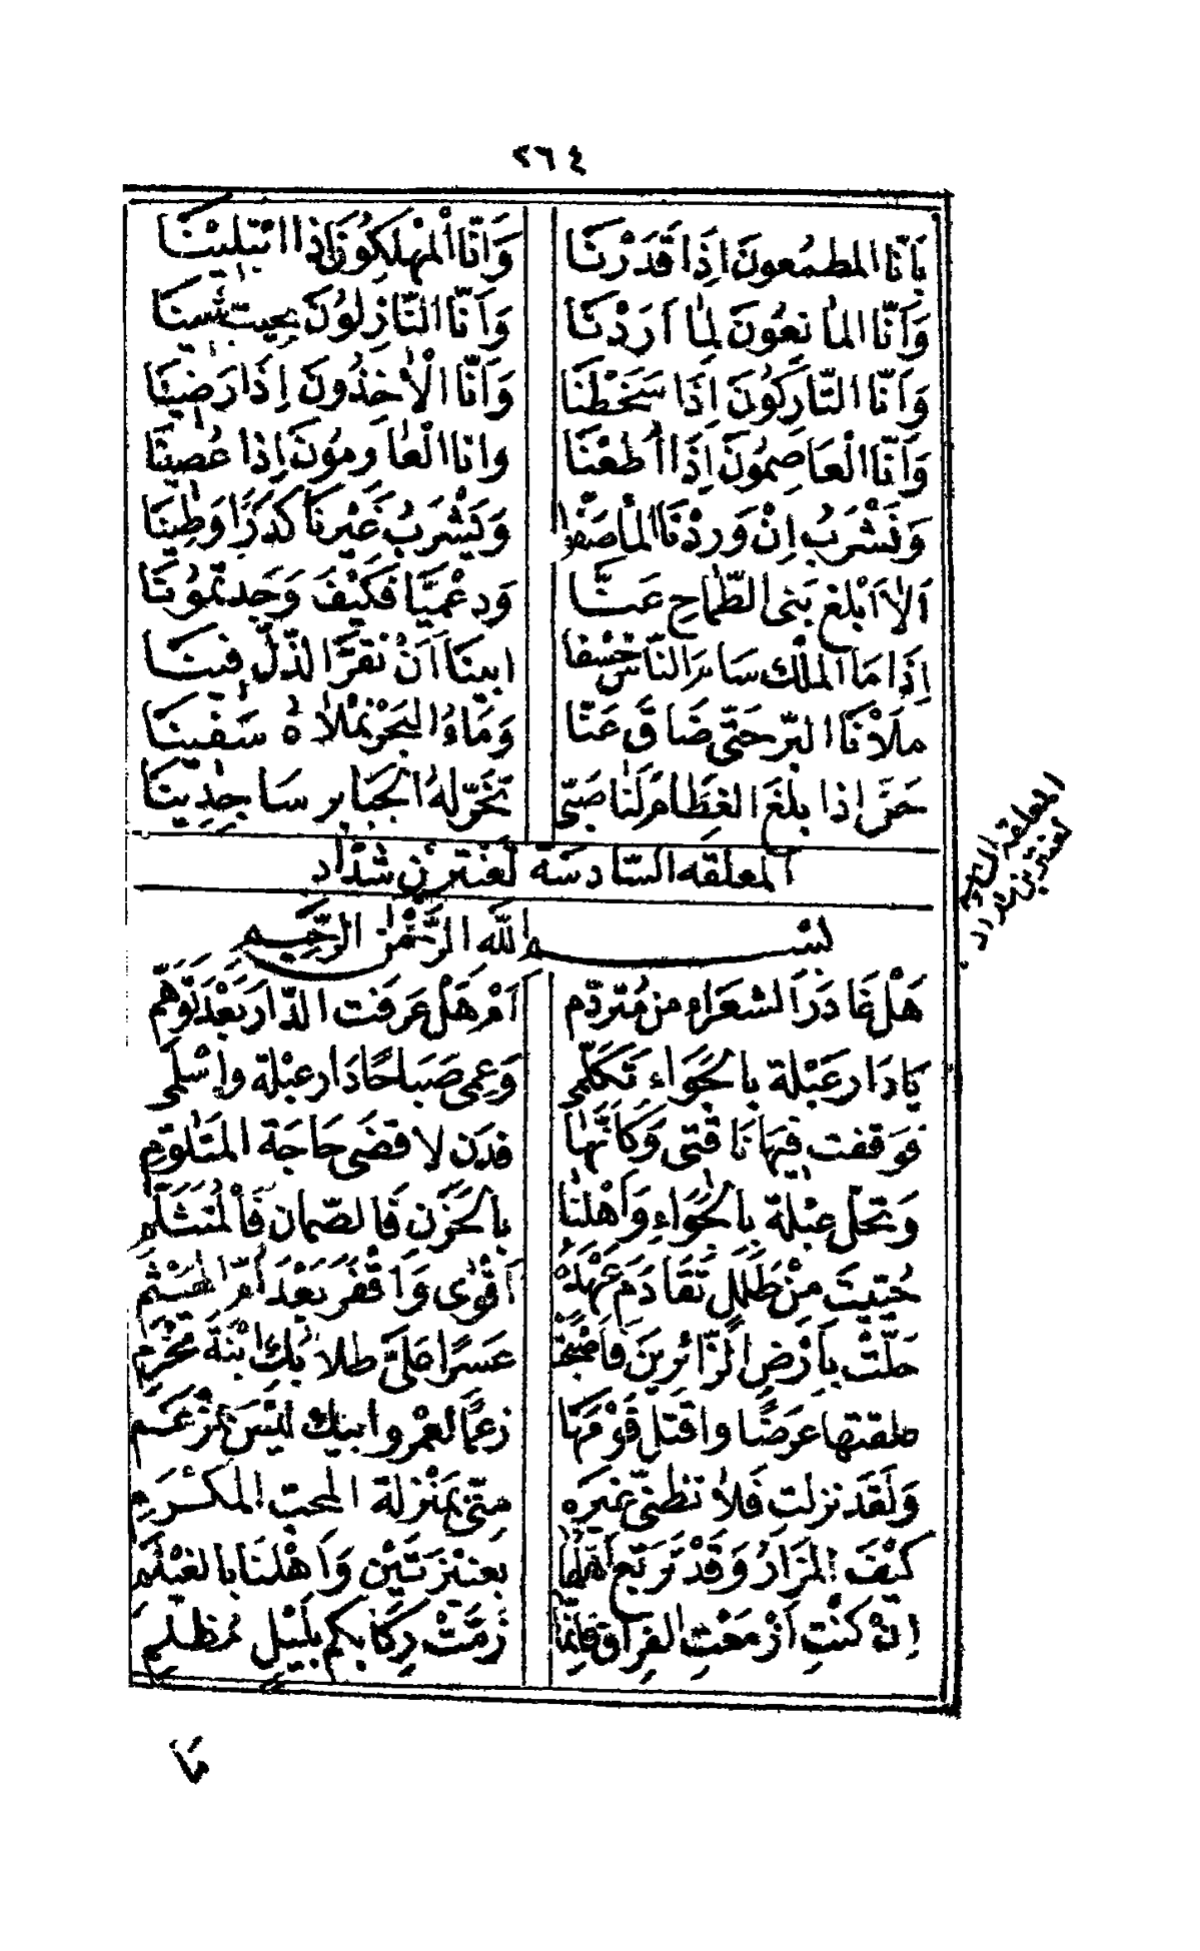 ٢٦٤
بِاَنَّا المطمعونَ اِذَا قَدَرْنَا وَاَنَّا اْلمُهْلِكُونَ اِذا ابْتُلِيْنَا
وَاَنَّا المانعُونَ لِمٰا اَرَدْنَا وَاَنَّا النَّازِلُونَ بحيث شِينَا
وَاَنَّا التَّارِكُونَ اِذَا سَخَطْنَا وَاَنَّا الْاٰخذُونَ اِذَا رَضِيْنَا
وَاَنَّا الْعَاصِمُونَ اِذَا اُطِعْنَا وانا الْعٰارِمُونَ اِذا عُصِيْنَا
وَنَشْرَبُ اِنْ وَرَدْنَا الْمٰا صَفْوًا وَيَشْرَبُ غَيْرنَا كَدَرًا وَطِيْنَا
اَلاٰ اَبْلغ بَنى الطّمّاحِ عَنَّا وَدِعْمِيًّا فَكَيْفَ وَجَدتمُوُنَا
اِذَا مَا الْمَلْك سَامَ النَّاسَ خَسْفًا ابينَا اَنْ نُقَرَّ الذّلّ فينَا
ملَاْنَا البَرّ حَتّى ضَاقَ عَنَّا وَمَاءُ البَحْر نملاٰهُ سَفينَا
حَتّى اِذا بلَغَ الفِطَام لَنا صَبىّ تَخرّ لهُ الجَبَابر سَاجِدِينَا
المعلقه السّادسَة لعنتر بن شدّاد
المعلقة السادسة
لعنتر بن شداد
بســـم الله الرَّحْمٰن الرَّحِيم
هَلْ غَادَرَ الشعَرَاء من مُتَردّم اَمْ هَلْ عَرَفت الدّار بَعْدَ تَوَهّم
يَا دَار عَبْلة بالجَوَاءِ تَكَلّمى وَعِمى صَبَاحًا دَار عبْلة واسْلمى
فوَقفت فيهَا نَاقَتى وَكَاَنَّهٰا فدَن لاقضَى حَاجَة المتَلَوّم
وَتحلّ عبْلة بِالجَوَاءِ وَاَهْلنَا بالحَزَن فَالصّمان فَالْمُتَثَلّم
حُيّيتَ مِنْ طَلَلٍ تَقَادَمَ عَهْدهُ اَقْوٰى وَاَقْفَرَ بَعْدَ اُمّ الهَيْثم
حَلّتْ بِاَرْضِ الزّائرينَ فاَصْبَحْتْ عَسِرًا عَلَىّ طلابُكِ ابْنَةَ مَخْرَم
علقتها عَرَضًا واقتل قَوْمَهَا زعمًا لعَمْرو أبيك ليْسَ بمَزْعَم
وَلَقَد نزلت فَلاٰ تظنّى غيرَه منّى بمَنْزلة المحبّ المكْرَم
كَيْفَ المزَارُ وَقَدْ تَرَبّع اَهْلُهَا بعنيْزَتَيْن وَاَهْلنَا بالغيْلَم
اِنْ كنْتِ اَزْمَعْتِ الفِرَاق فاِنّما زُمَّتْ رِكَابكم بلَيْلٍ مُظلِم
مَا